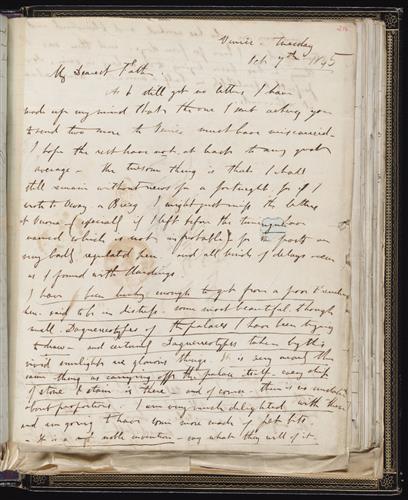 Venice - Tuesday
Oct 7th 1845
My Dearest Father
As I still get no letters, I have
made up my mind that the one I sent asking you
to send two more to Venice must have miscarried.
I hope the rest have not, at back to any great
average - the tiresome thing is that I shall
still remain without news for a fortnight, for if I
wrote to Vevay or Brieg I might just miss the letters
at Verona - (especially if I left before the time you have
named which is not improbable) for the posts are
very badly regulated here - and all kinds of delays occur
as I found with Hardings.
I have been lucky enough to get from a poor Frenchman
here, said to be in distress - some most beautiful, though
small, Daguerreotypes of the palaces I have been trying
to draw - and certainly Daguerreotypes taken by this
vivid sunlight are glorious things. It is very nearly the
same thing as carrying off the palace itself - every chip
of stone & stain is there - and of course - there is no mistake
about proportions. I am very much delighted with these
and am going to have some more made of pet bits.
It is a noble invention - say what they will of it